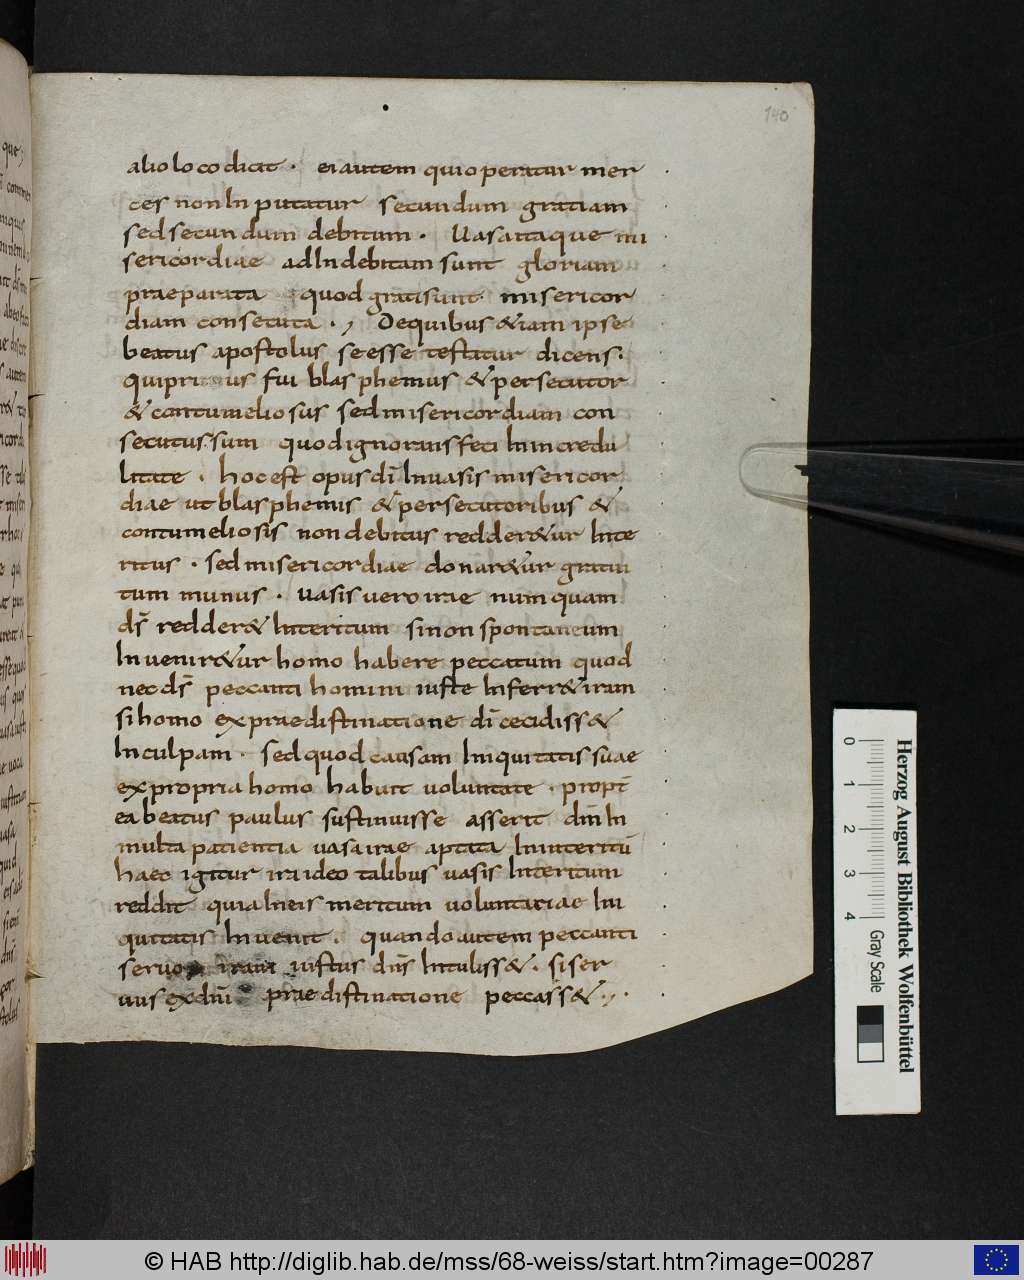 140
alio loco dicit · ei autem qui operatur mer
ces non Inputatur secundum gratiam
sed secundum debitum · Uasa itaque mi
sericordiae ad Indebitam sunt gloriam
praeparata quod gratis sunt misericor
diam consecuta · , De quibus &iam ipse
beatus apostolus se esse testatur dicens ·
qui prius fui blasphemus & persecutor
& contumeliosus sed misericordiam con
secutus sum quod ignorans feci In incredu
litate · hoc est opus dī In uasis misericor
diae ut blasphemis & persecutoribus &
contumeliosis non debitus redder&ur Inte
ritus · sed misericordiae donar&ur gratui
tum munus · uasis uero irae numquam
ds̄ redder& Interitum si non spontaneum
Inuenir&ur homo habere peccatum quod
nec ds̄ peccanti homini iuste Inferr& iram
si homo ex praedistinatione dī cecidiss&
In culpam · sed quod causam Iniquitatis suae
ex propria homo habuit uoluntate · propt̄
ea beatus paulus sustinuisse asserit dn̄m In
multa patientia uasa irae aptata In interitū
haec igitur ira ideo talibus uasis Interitum
reddit quia In eis meritum uoluntariae Ini
quitatis Inuenit · quando autem peccanti
seruo iram iustus dn̄s Intuliss& · si ser
uus ex dn̄i praedistinatione peccass& · , ·
0 1 2 3 4
Gray Scale
Herzog August Bibliothek Wolfenbüttel
© HAB http://diglib.hab.de/mss/68-weiss/start.htm?image=00287